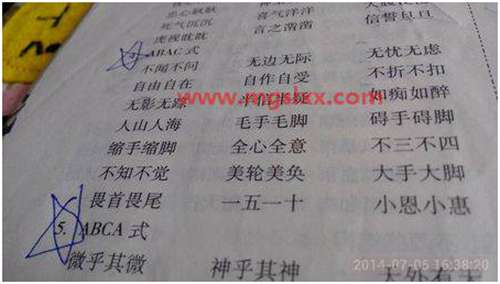 忠心耿耿 神气十足
死气沉沉 喜气洋洋
虎视眈眈 言之凿凿 信誓旦旦
ABAC 式
不闻不问 无边无际 无忧无虑
自由自在 自作自受 不折不扣
无影无踪 半信半疑 如痴如醉
www.mgslxx.com
人山人海 毛手毛脚 碍手碍脚
缩手缩脚 全心全意 不三不四
不知不觉 美轮美奂 大手大脚
畏首畏尾 一五一十 小恩小惠
5. ABCA 式
微乎其微 神乎其神 天外有天
2014-07-05 16:38:20